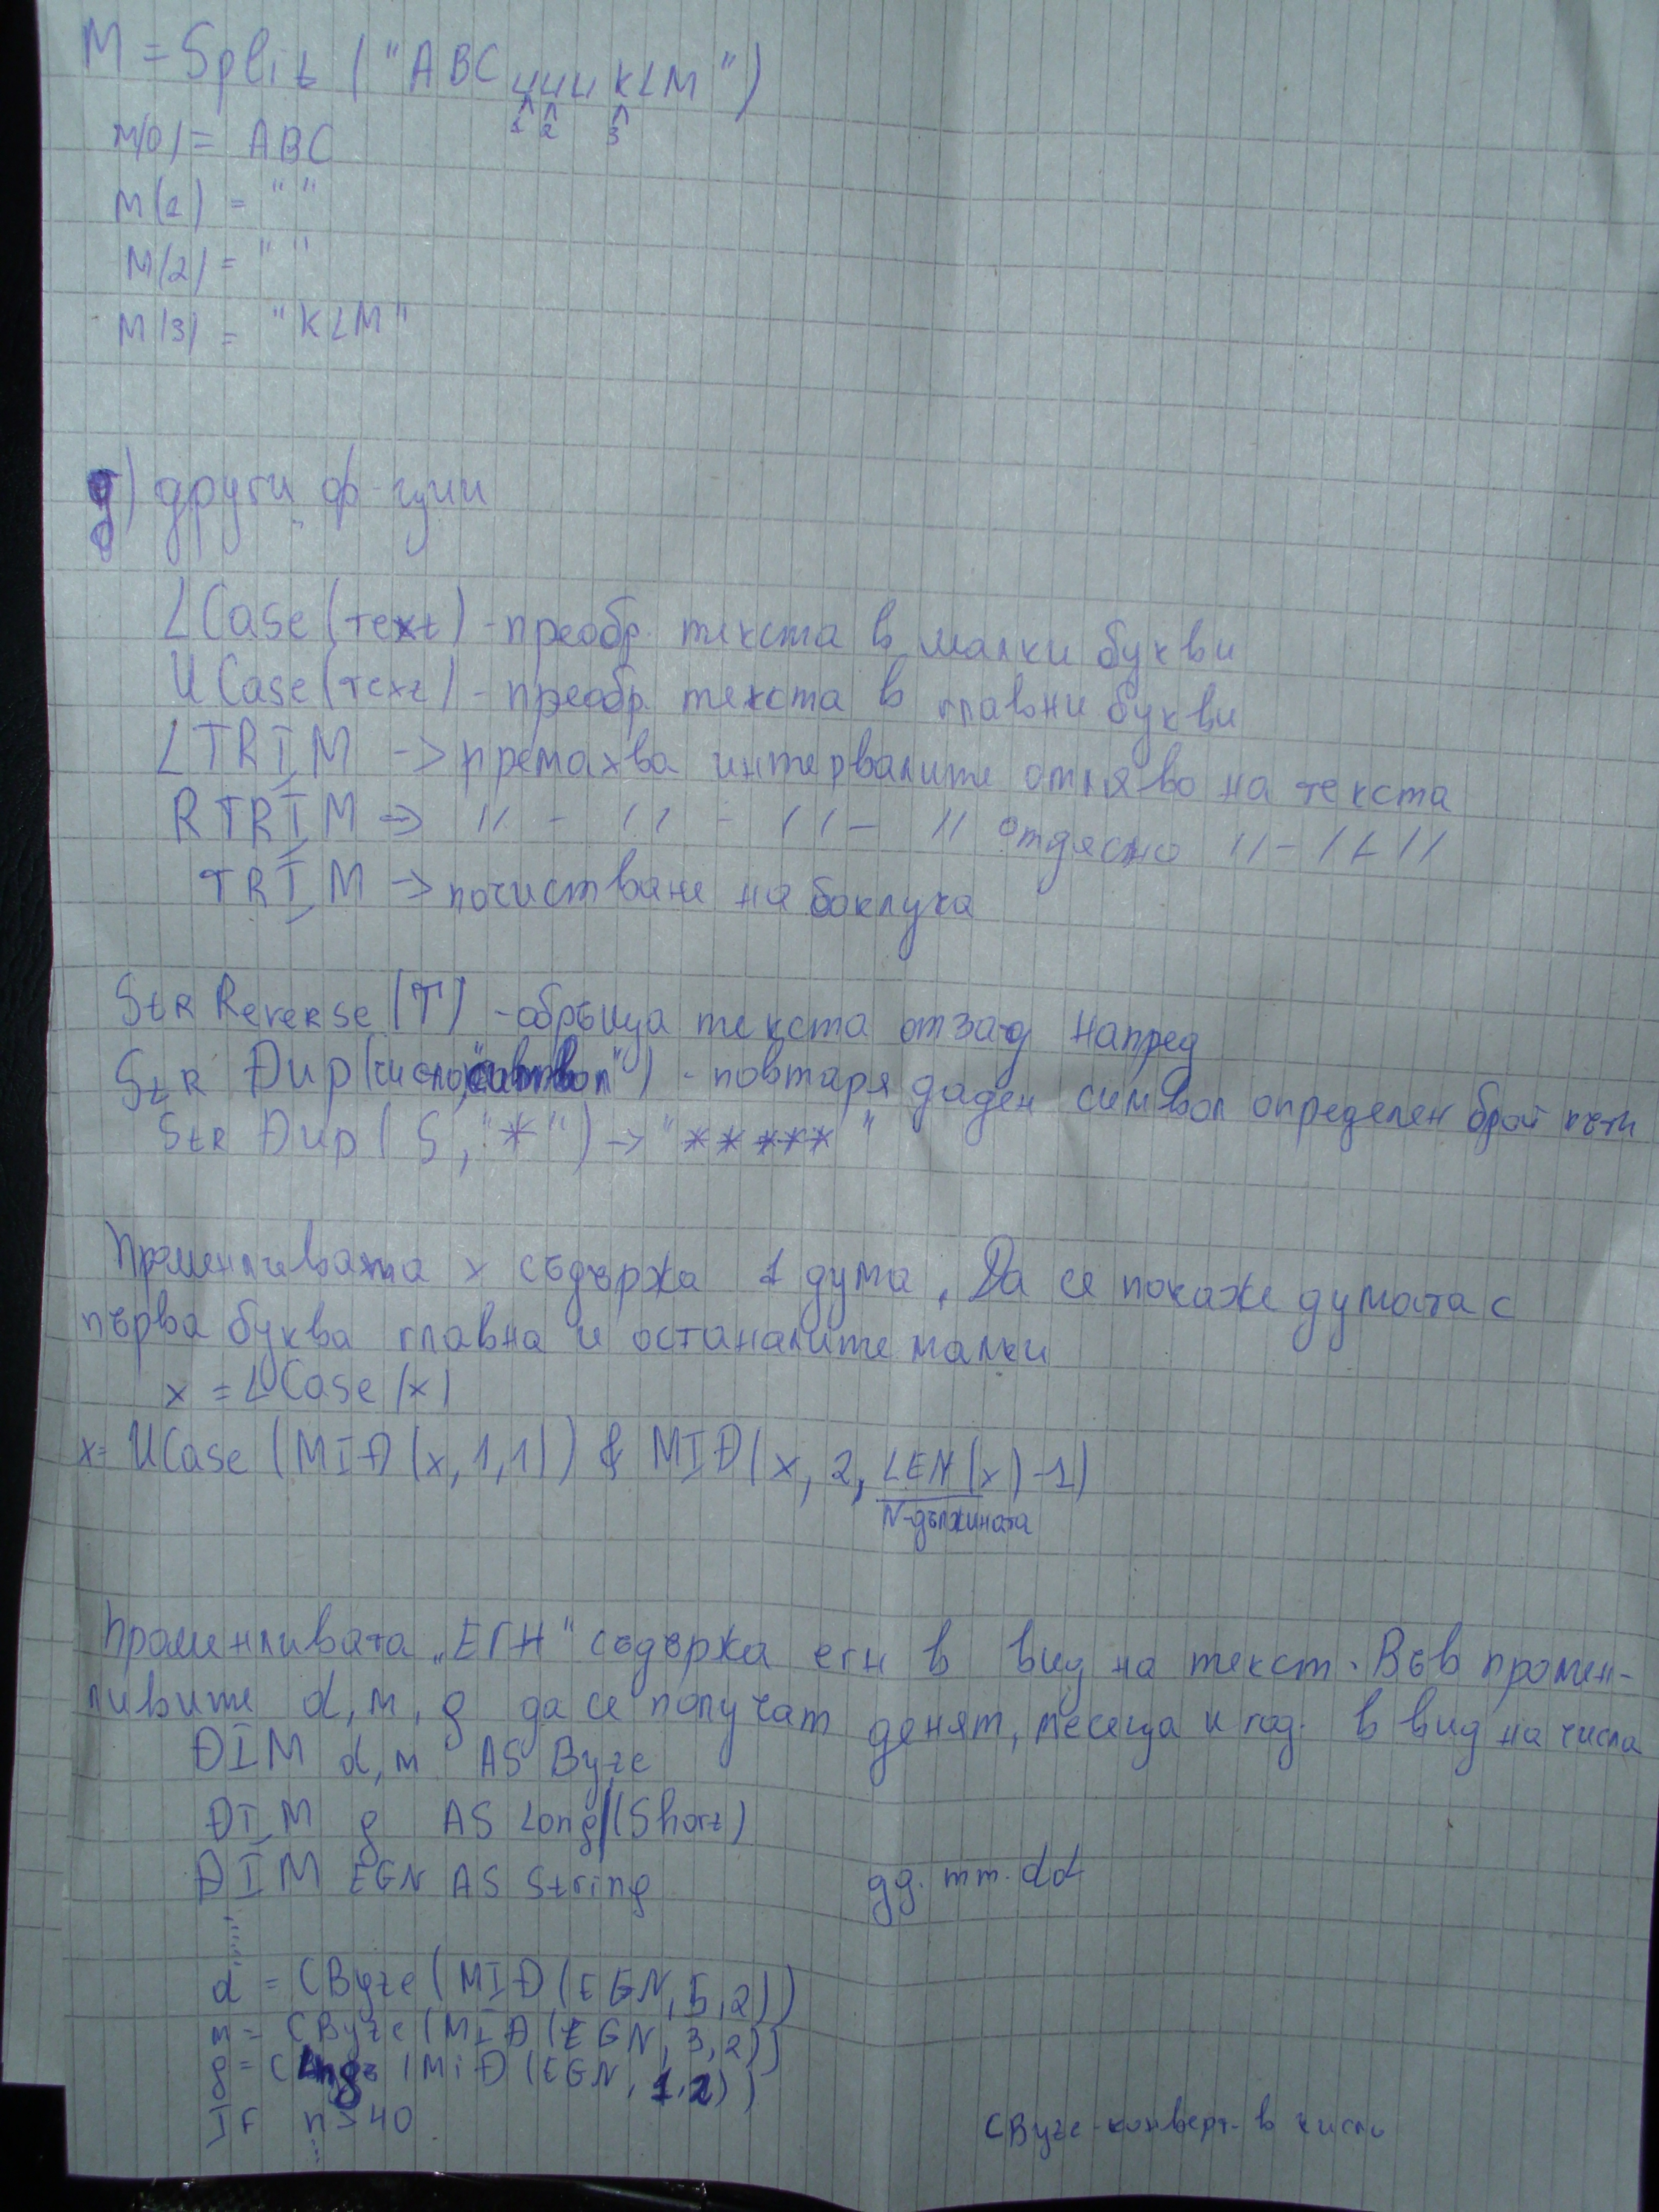 M = Split ("ABC␣␣␣KLM")
1 2 3
M(0) = ABC
M(1) = " "
M(2) = " "
M(3) = "KLM"
д) други ф-ции
LCase (text) - преобр. текста в малки букви
UCase (text) - преобр. текста в главни букви
LTRIM -> премахва интервалите отляво на текста
RTRIM -> 11 - 11 - 11 - 11 отдясно 11 - 11 11
TRIM -> почистване на боклука
StR Reverse (T) - обръща текста отзад напред
StR Dup (число, "символ") - повтаря даден символ определен брой пъти
StR Dup (5, "*") -> "*****"
Променливата x съдържа 1 дума. Да се покаже думата с
първа буква главна и останалите малки
x = LCase (x)
x = UCase (MID (x, 1, 1)) & MID (x, 2, LEN (x) - 1)
N-дължината
Променливата „ЕГН" съдържа егн в вид на текст. Във промен-
ливите d, m, g да се получат денят, месеца и год. в вид на числа
DIM d, m AS Byte
DIM g AS Long (Short)
DIM EGN AS String gg. mm. dd
d = CByte (MID (EGN, 5, 2))
m = CByte (MID (EGN, 3, 2))
g = CLng (MID (EGN, 1, 2))
IF m > 40
CByte - конверт. в число